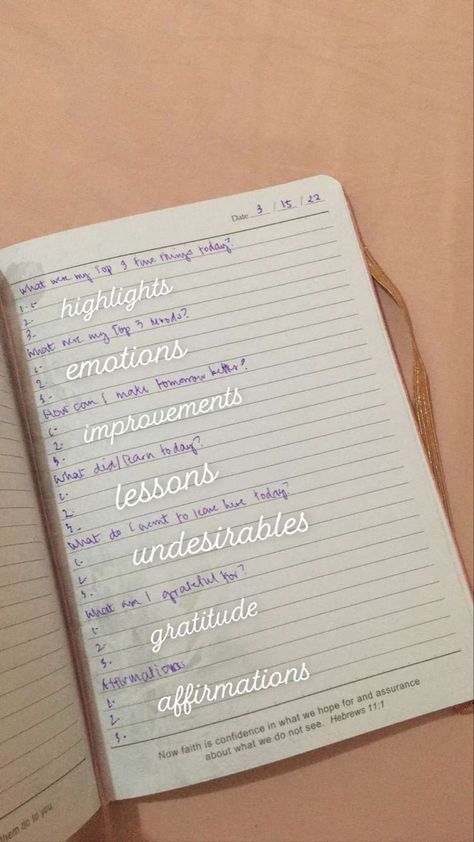 Date 3 / 15 / 22
What were my Top 3 fave things today?
1.
2.
highlights
3.
What were my Top 3 Moods?
1.
2.
emotions
3.
How can I make tomorrow better?
1.
2.
improvements
3.
What did I learn today?
1.
2.
lessons
3.
What do I want to leave here today?
1.
2.
undesirables
3.
What am I grateful for?
1.
2.
gratitude
3.
Affirmations
1.
2.
affirmations
3.
Now faith is confidence in what we hope for and assurance
about what we do not see. Hebrews 11:1
them do to you.